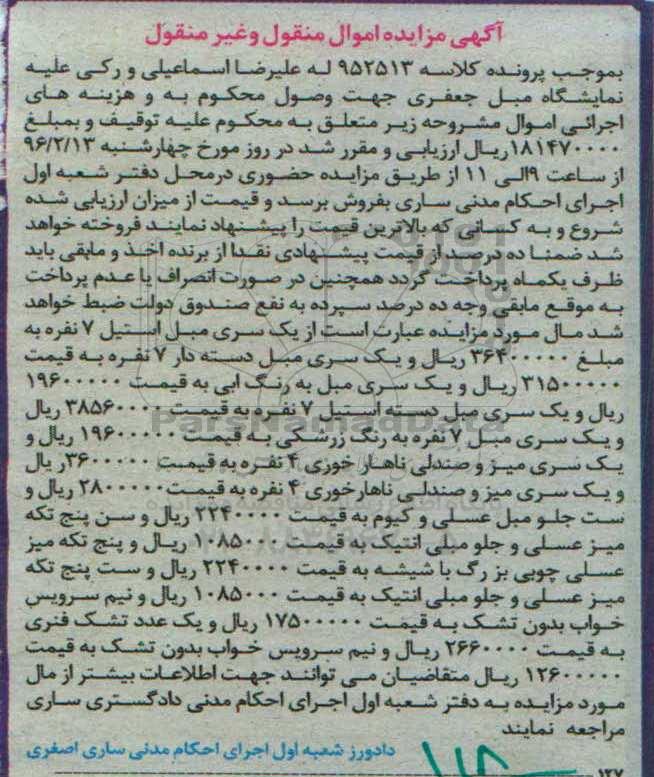 آگهی مزایده اموال منقول وغیر منقول
بموجب پرونده کلاسه ۹۵۲۵۱۳ له علیرضا اسماعیلی و رکی علیه
نمایشگاه مبل جعفری جهت وصول محکوم به و هزینه های
اجرائی اموال مشروحه زیر متعلق به محکوم علیه توقیف و بمبلغ
۱۸۱۴۷۰۰۰۰ریال ارزیابی و مقرر شد در روز مورخ چهارشنبه ۹۶/۲/۱۳
از ساعت ۹الی ۱۱ از طریق مزایده حضوری درمحل دفتر شعبه اول
اجرای احکام مدنی ساری بفروش برسد و قیمت از میزان ارزیابی شده
شروع و به کسانی که بالاترین قیمت را پیشنهاد نمایند فروخته خواهد
شد ضمنا ده درصد از قیمت پیشنهادی نقدا از برنده اخذ و مابقی باید
ظرف یکماه پرداخت گردد همچنین در صورت انصراف یا عدم پرداخت
به موقع مابقی وجه ده درصد سپرده به نفع صندوق دولت ضبط خواهد
شد مال مورد مزایده عبارت است از یک سری مبل استیل ۷ نفره به
مبلغ ۳۶۴۰۰۰۰۰ ریال و یک سری مبل دسته دار ۷ نفره به قیمت
۳۱۵۰۰۰۰۰ ریال و یک سری مبل به رنگ ابی به قیمت ۱۹۶۰۰۰۰۰
ریال و یک سری مبل دسته استیل ۷ نفره به قیمت ۳۸۵۶۰۰۰۰ ریال
و یک سری مبل ۷ نفره به رنگ زرشکی به قیمت ۱۹۶۰۰۰۰۰ ریال و
یک سری میز و صندلی ناهار خوری ۴ نفره به قیمت ۳۶۰۰۰۰۰ریال
و یک سری میز و صندلی ناهارخوری ۴ نفره به قیمت۲۸۰۰۰۰۰ ریال و
ست جلو مبل عسلی و کیوم به قیمت ۲۲۴۰۰۰۰ ریال و سن پنج تکه
میز عسلی و جلو مبلی انتیک به قیمت ۱۰۸۵۰۰۰ ریال و پنج تکه میز
عسلی چوبی بز رگ با شیشه به قیمت ۲۲۴۰۰۰۰ ریال و ست پنج تکه
میز عسلی و جلو مبلی انتیک به قیمت ۱۰۸۵۰۰۰ ریال و نیم سرویس
خواب بدون تشک به قیمت ۱۷۵۰۰۰۰۰ ریال و یک عدد تشک فنری
به قیمت ۲۶۶۰۰۰۰ ریال و نیم سرویس خواب بدون تشک به قیمت
۱۲۶۰۰۰۰۰ ریال متقاضیان می توانند جهت اطلاعات بیشتر از مال
مورد مزایده به دفتر شعبه اول اجرای احکام مدنی دادگستری ساری
مراجعه نمایند
دادورز شعبه اول اجرای احکام مدنی ساری اصغری
۱۲۷
ParsNamadData